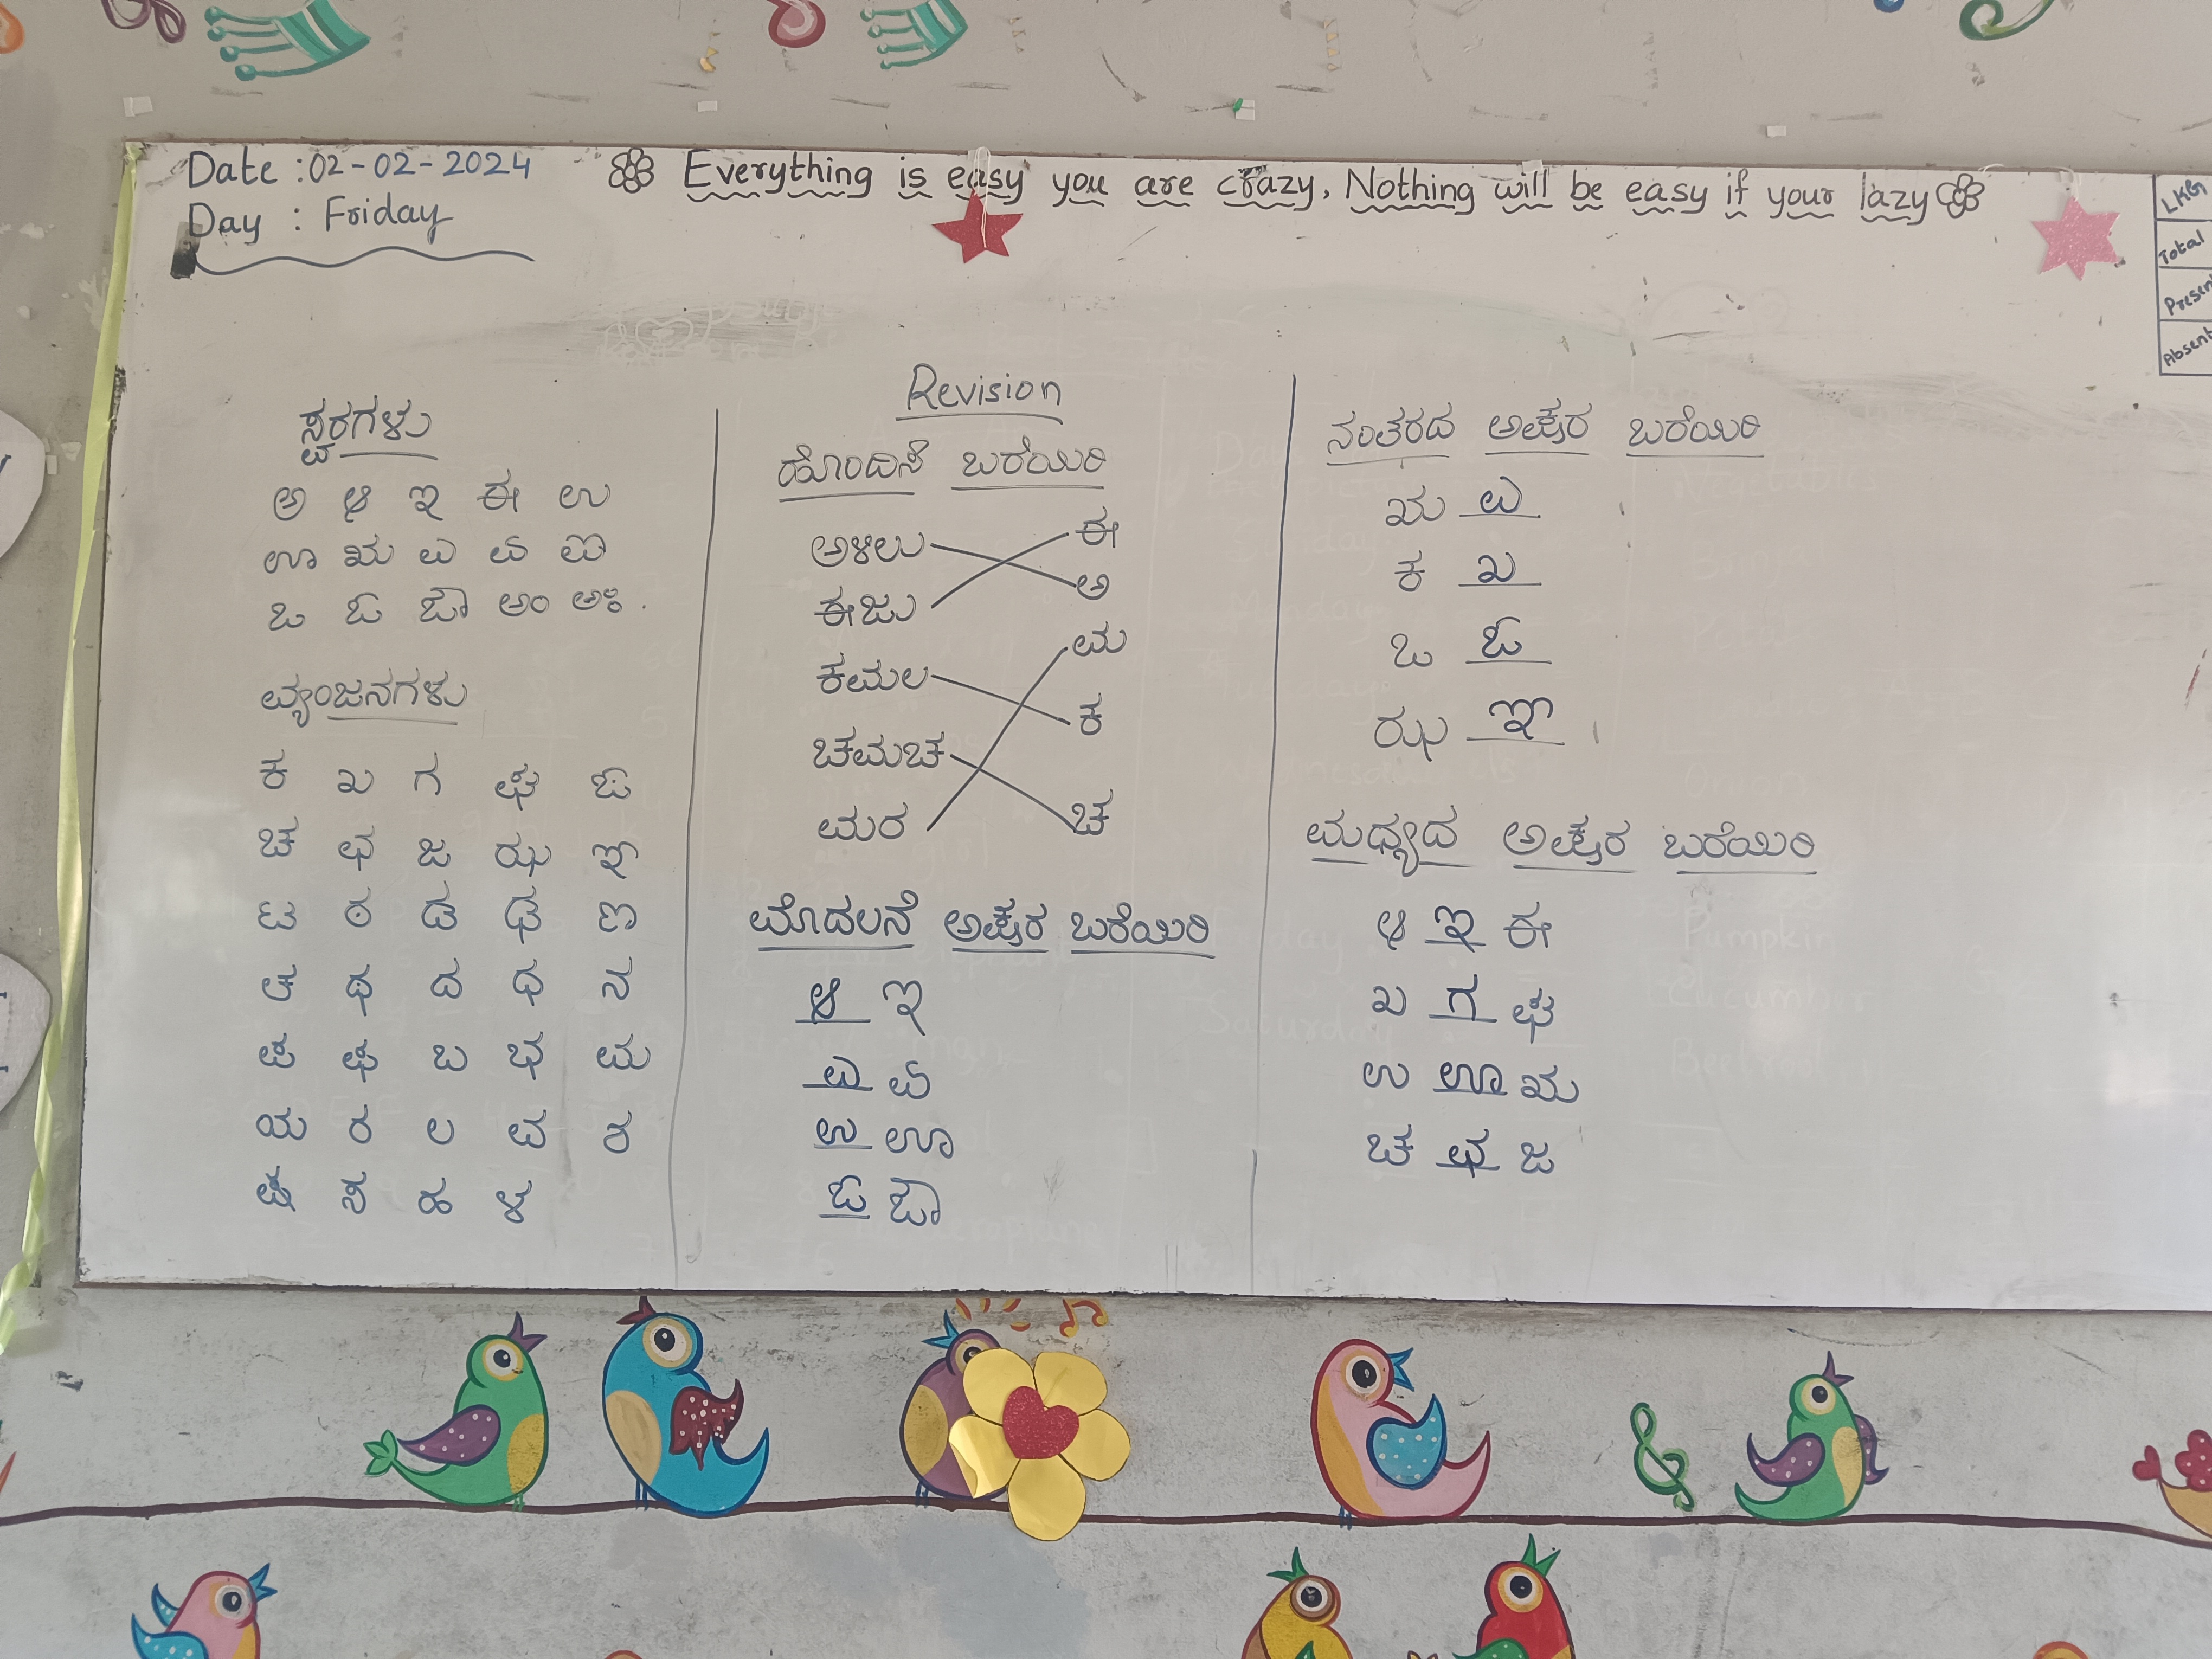 Date : 02-02-2024
Everything is easy you are crazy, Nothing will be easy if your lazy
Day : Friday
LKG
Total
Present
Absent
Revision
ಸ್ವರಗಳು
ಅ ಆ ಇ ಈ ಉ
ಊ ಋ ಎ ಏ ಐ
ಒ ಓ ಔ ಅಂ ಅಃ .
ವ್ಯಂಜನಗಳು
ಕ ಖ ಗ ಘ ಙ
ಚ ಛ ಜ ಝ ಞ
ಟ ಠ ಡ ಢ ಣ
ತ ಥ ದ ಧ ನ
ಪ ಫ ಬ ಭ ಮ
ಯ ರ ಲ ವ ಶ
ಷ ಸ ಹ ಳ
ಹೊಂದಿಸಿ ಬರೆಯಿರಿ
ಅಳಿಲು ಈ
ಈಜು ಅ
ಕಮಲ ಮ
ಚಮಚ ಕ
ಮರ ಚ
ಮೊದಲನೆ ಅಕ್ಷರ ಬರೆಯಿರಿ
ಆ ಇ
ಎ ಏ
ಉ ಊ
ಓ ಔ
ನಂತರದ ಅಕ್ಷರ ಬರೆಯಿರಿ
ಋ ಎ
ಕ ಖ
ಒ ಓ
ಝ ಞ
ಮಧ್ಯದ ಅಕ್ಷರ ಬರೆಯಿರಿ
ಆ ಇ ಈ
ಖ ಗ ಘ
ಉ ಊ ಋ
ಚ ಛ ಜ